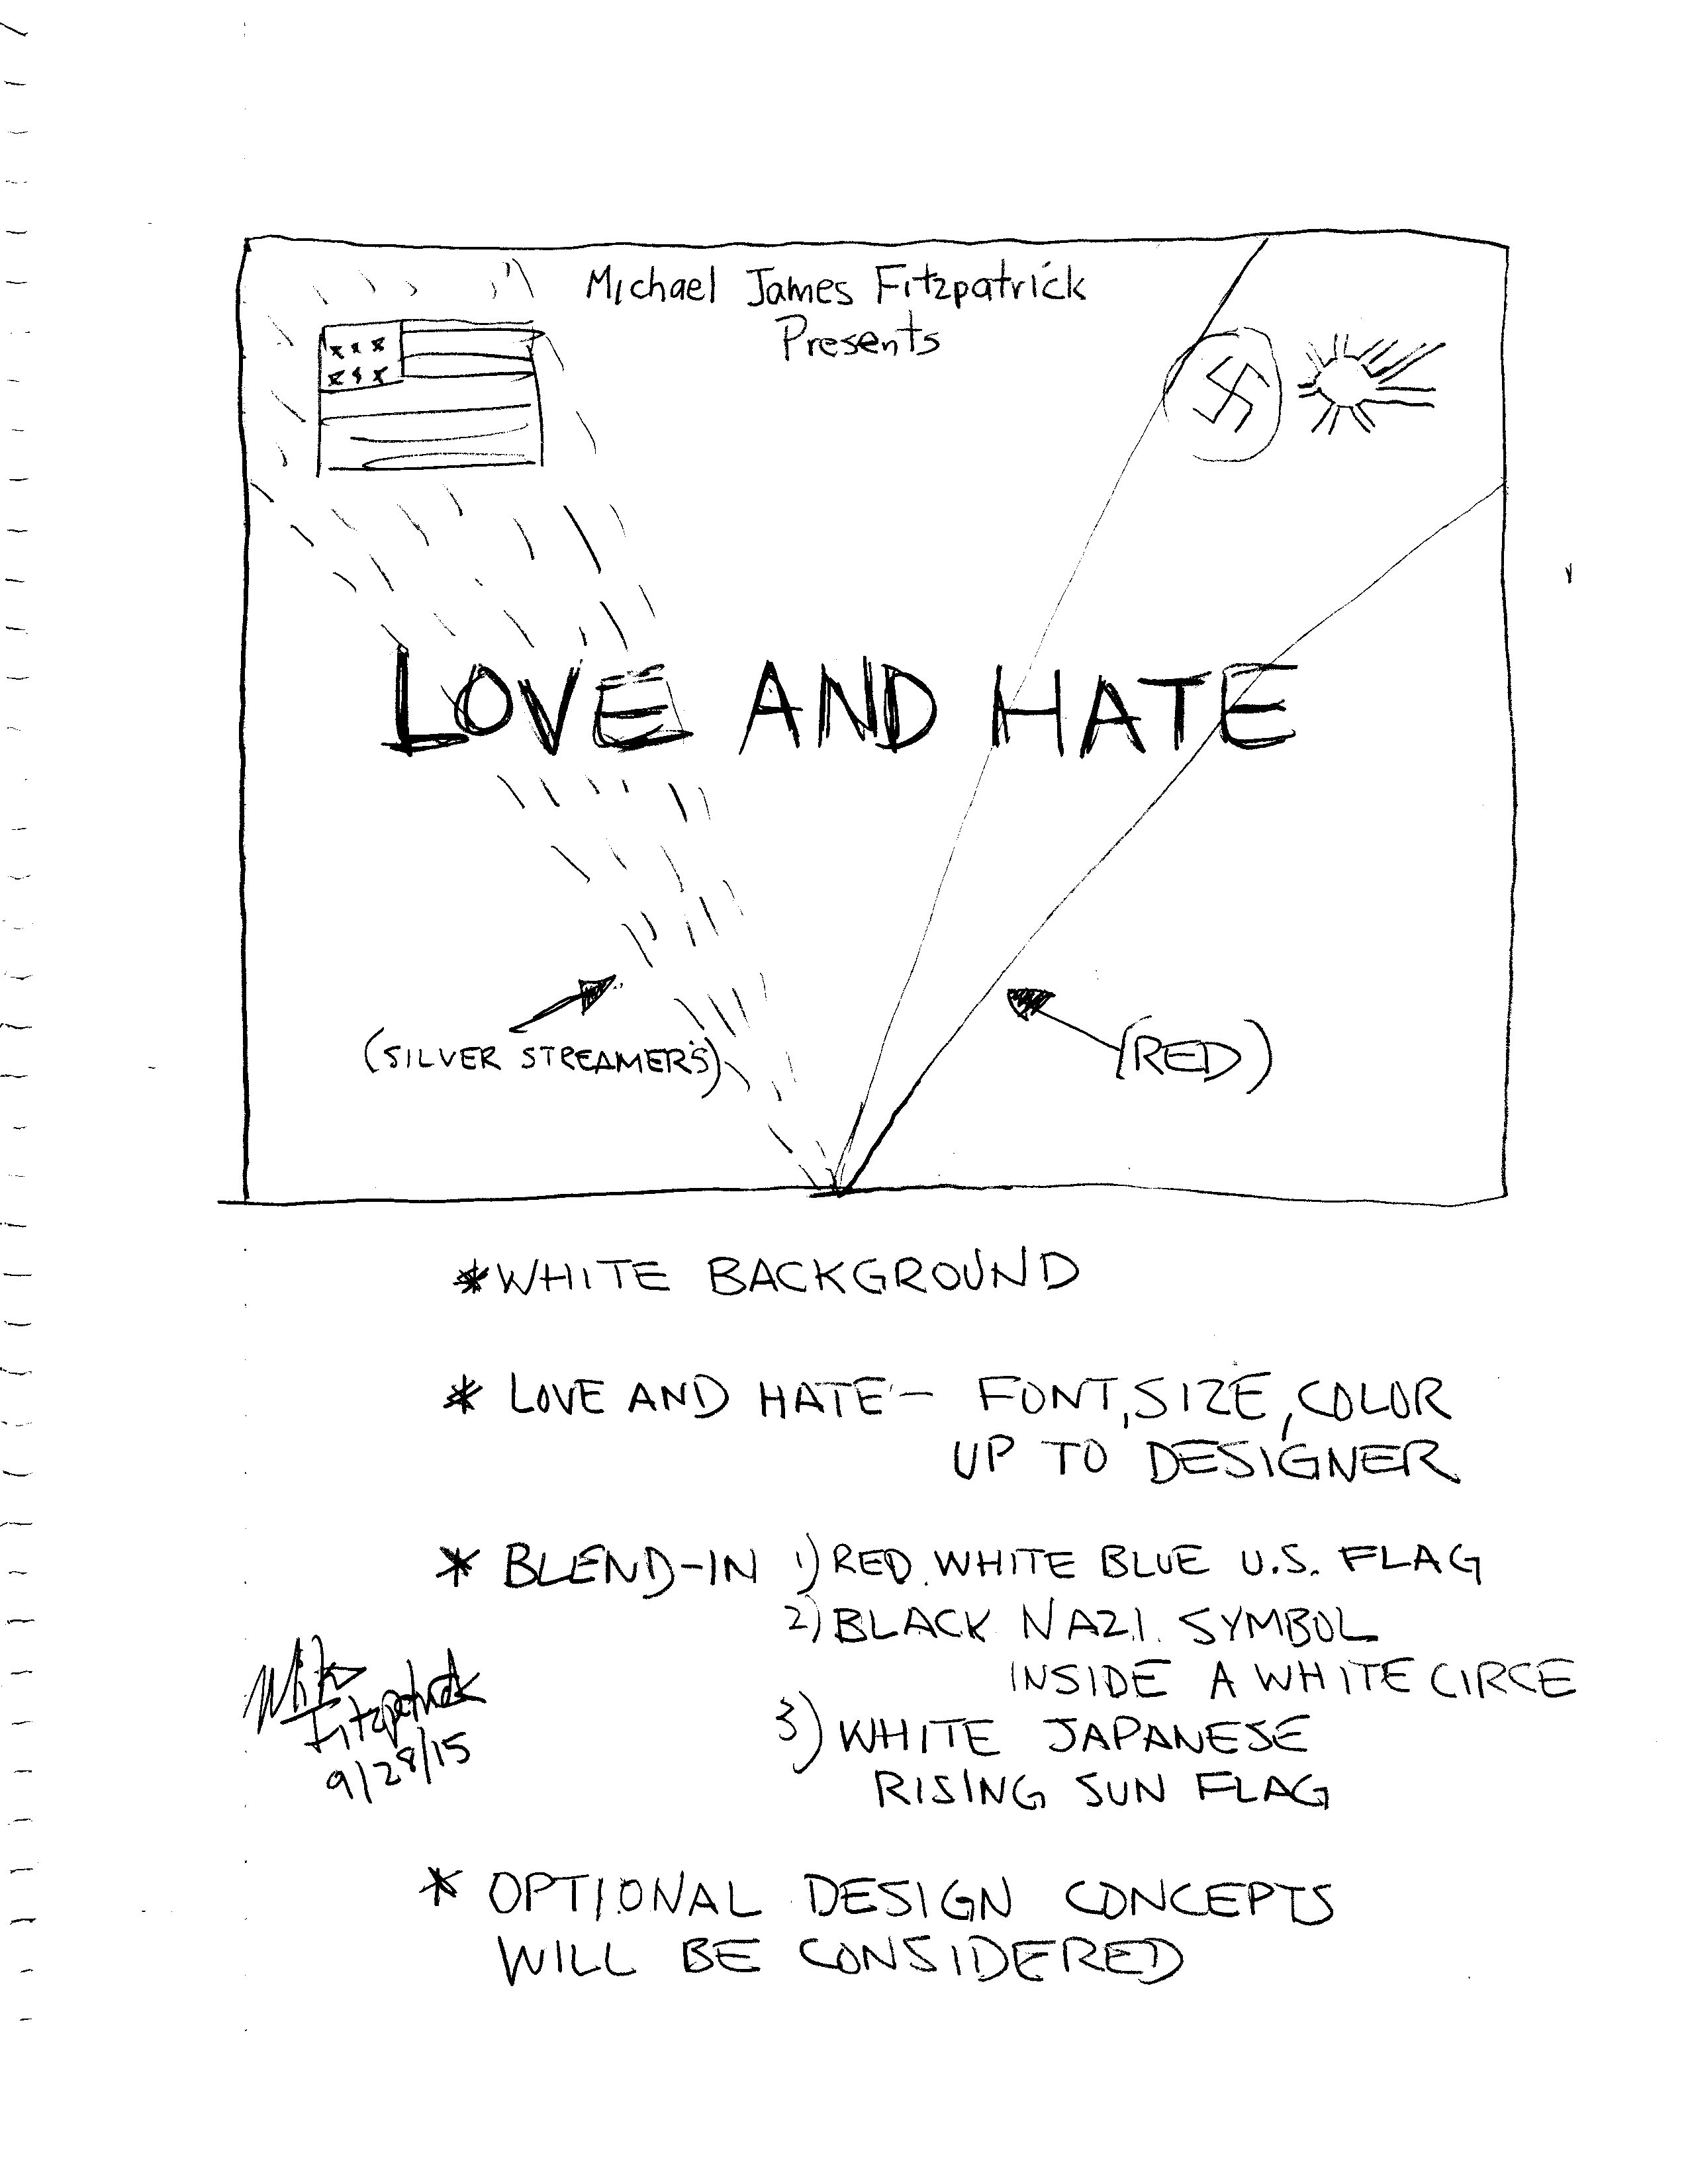 Michael James Fitzpatrick
Presents
LOVE AND HATE
(SILVER STREAMERS)
(RED)
*WHITE BACKGROUND
* LOVE AND HATE - FONT, SIZE, COLOR
UP TO DESIGNER
* BLEND-IN 1) RED WHITE BLUE U.S. FLAG
2) BLACK NAZI SYMBOL
INSIDE A WHITE CIRCE
3) WHITE JAPANESE
RISING SUN FLAG
Mike
Fitzpatrick
9/28/15
* OPTIONAL DESIGN CONCEPTS
WILL BE CONSIDERED